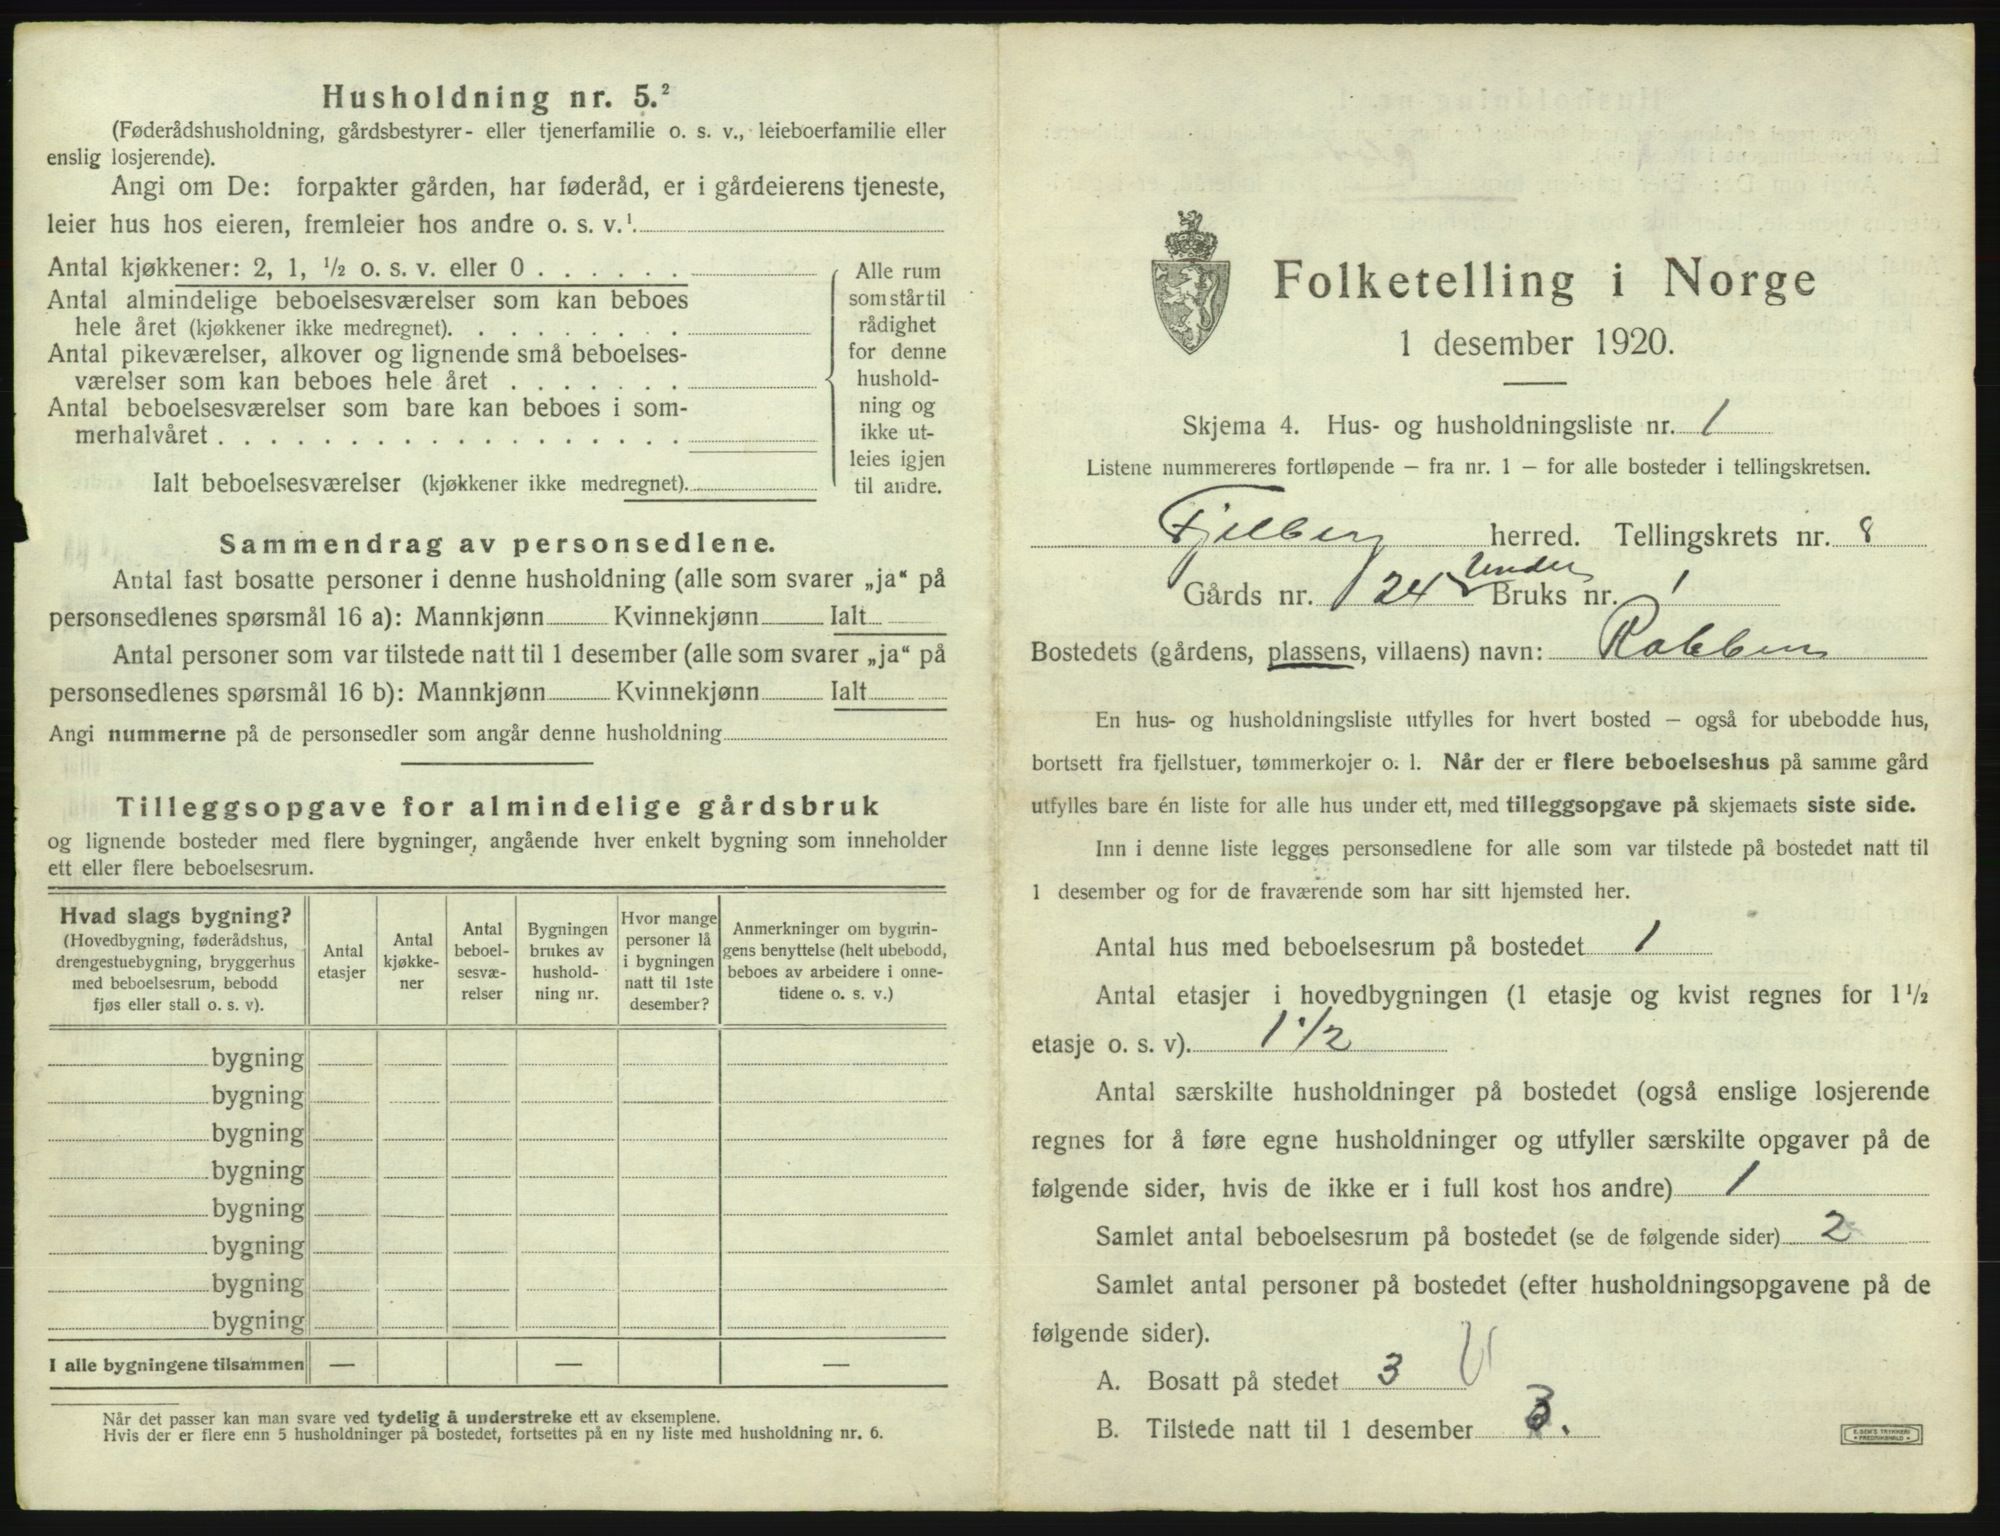 Husholdning nr. 5.²
(Føderådshusholdning, gårdsbestyrer- eller tjenerfamilie o. s. v., leieboerfamilie eller
enslig losjerende).
Angi om De: forpakter gården, har føderåd, er i gårdeierens tjeneste,
leier hus hos eieren, fremleier hos andre o. s. v.¹
Antal kjøkkener: 2, 1, ½ o. s. v. eller 0 . . . . . .
Antal almindelige beboelsesværelser som kan beboes
hele året (kjøkkener ikke medregnet). . . . . . . . .
Antal pikeværelser, alkover og lignende små beboelses-
værelser som kan beboes hele året . . . . . . .
Antal beboelsesværelser som bare kan beboes i som-
merhalvåret . . . . . . . . . . . . . . . . . .
Ialt beboelsesværelser (kjøkkener ikke medregnet).
Alle rum
som står til
rådighet
for denne
hushold-
ning og
ikke ut-
leies igjen
til andre.
Sammendrag av personsedlene.
Antal fast bosatte personer i denne husholdning (alle som svarer „ja“ på
personsedlenes spørsmål 16 a): Mannkjønn Kvinnekjønn Ialt
Antal personer som var tilstede natt til 1 desember (alle som svarer „ja“ på
personsedlenes spørsmål 16 b): Mannkjønn Kvinnekjønn Ialt
Angi nummerne på de personsedler som angår denne husholdning
Tilleggsopgave for almindelige gårdsbruk
og lignende bosteder med flere bygninger, angående hver enkelt bygning som inneholder
ett eller flere beboelsesrum.
Hvad slags bygning?
(Hovedbygning, føderådshus,
drengestuebygning, bryggerhus
med beboelsesrum, bebodd
fjøs eller stall o. s. v).
Antal
etasjer
Antal
kjøkke-
ner
Antal
beboel-
sesvæ-
relser
Bygningen
brukes av
hushold-
ning nr.
Hvor mange
personer lå
i bygningen
natt til 1ste
desember?
Anmerkninger om bygnin-
gens benyttelse (helt ubebodd,
beboes av arbeidere i onne-
tidene o. s. v.)
bygning
bygning
bygning
bygning
bygning
bygning
bygning
bygning
I alle bygningene tilsammen — — —
Når det passer kan man svare ved tydelig å understreke ett av eksemplene.
Hvis der er flere enn 5 husholdninger på bostedet, fortsettes på en ny liste med husholdning nr. 6.
Folketelling i Norge
1 desember 1920.
Skjema 4. Hus- og husholdningsliste nr. 1
Listene nummereres fortløpende – fra nr. 1 – for alle bosteder i tellingskretsen.
Fjelberg herred. Tellingskrets nr. 8
Gårds nr. 124 Under Bruks nr. 1
Bostedets (gårdens, plassens, villaens) navn: Robben
En hus- og husholdningsliste utfylles for hvert bosted – også for ubebodde hus,
bortsett fra fjellstuer, tømmerkojer o. l. Når der er flere beboelseshus på samme gård
utfylles bare én liste for alle hus under ett, med tilleggsopgave på skjemaets siste side.
Inn i denne liste legges personsedlene for alle som var tilstede på bostedet natt til
1 desember og for de fraværende som har sitt hjemsted her.
Antal hus med beboelsesrum på bostedet 1
Antal etasjer i hovedbygningen (1 etasje og kvist regnes for 1½
etasje o. s. v). 1 1/2
Antal særskilte husholdninger på bostedet (også enslige losjerende
regnes for å føre egne husholdninger og utfyller særskilte opgaver på de
følgende sider, hvis de ikke er i full kost hos andre) 1
Samlet antal beboelsesrum på bostedet (se de følgende sider) 2
Samlet antal personer på bostedet (efter husholdningsopgavene på de
følgende sider).
A. Bosatt på stedet 3
B. Tilstede natt til 1 desember 3.
E. SEM'S TRYKKERI
FREDRIKSHALD